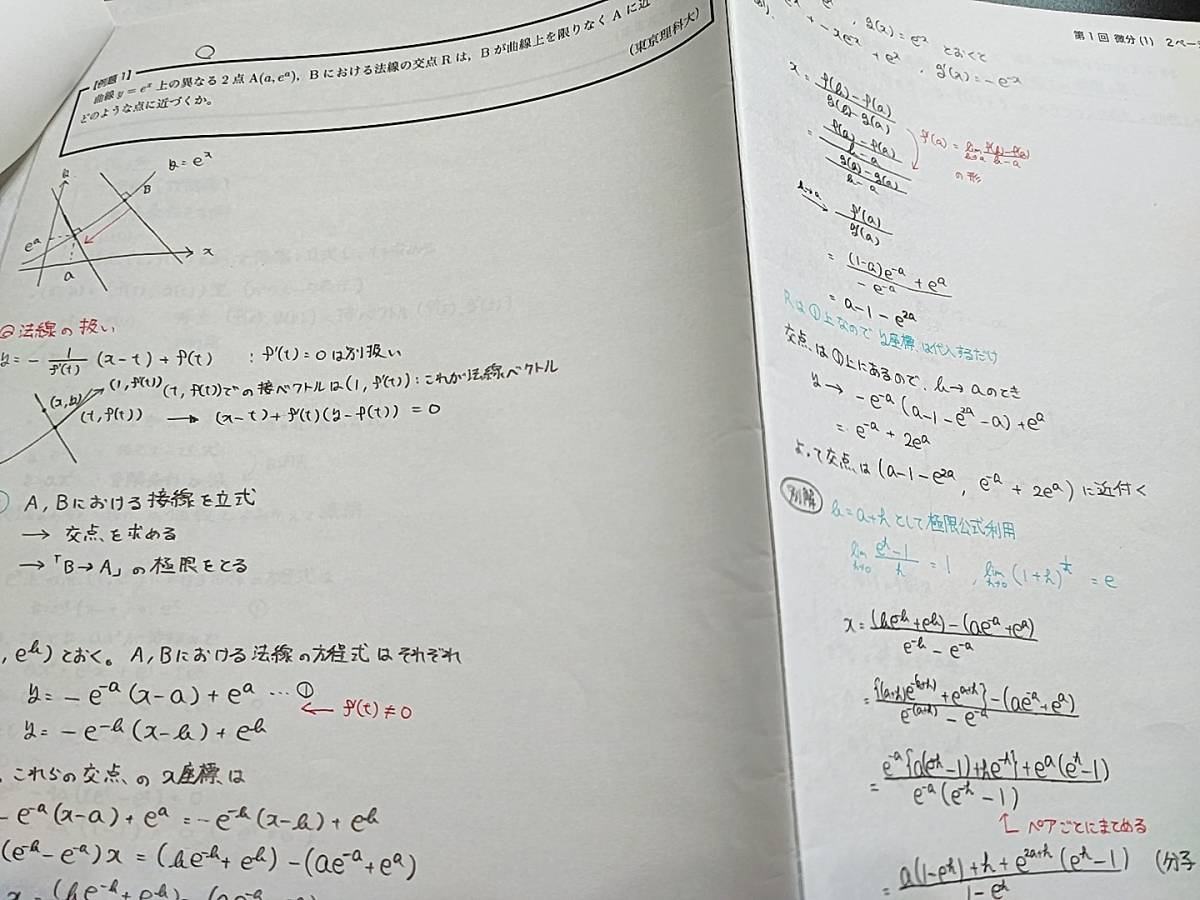 【例題1】
曲線 y=e^x 上の異なる2点 A(a, e^a), B における法線の交点 R は, B が曲線上を限りなく A に近
どのような点に近づくか。
(東京理科大)
y=e^x
B
e^a
a
x
法線の扱い
y=-1/f'(t) (x-t)+f(t) : f'(t)=0は別扱い
(x,y) (1, f'(t)) (t, f(t))での接ベクトルは(1, f'(t)):これが法線ベクトル
(t, f(t)) → (x-t)+f'(t)(y-f(t))=0
A, Bにおける接線を立式
→ 交点を求める
→「B→A」の極限をとる
, e^b)とおく。A, Bにおける法線の方程式はそれぞれ
y=-e^-a(x-a)+e^a …①
← f'(t)≠0
y=-e^-b(x-b)+e^b
これらの交点のx座標は
-e^-a(x-a)+e^a=-e^-b(x-b)+e^b
(e^-b-e^-a)x=(be^-b+e^b)-(ae^-a+e^a)
第1回 微分(1) 2ペー
, g(x)=e^-x とおくと
-xe^-x+e^x, g'(x)=-e^-x
x=(f(b)-f(a))/(g(b)-g(a))
=((f(b)-f(a))/(b-a))/((g(b)-g(a))/(b-a))
f'(a)=lim b→a (f(b)-f(a))/(b-a)
の形
b→a → f'(a)/g'(a)
=((1-a)e^-a+e^a)/(-e^-a)
=a-1-e^2a
Rは①上なのでy座標は代入するだけ
交点は①上にあるので、b→aのとき
y→ -e^-a(a-1-e^2a-a)+e^a
=e^-a+2e^a
よって交点は(a-1-e^2a, e^-a+2e^a)に近付く
別解
b=a+hとして極限公式利用
lim h→0 (e^h-1)/h=1, lim h→0 (1+h)^1/h=e
x=((be^-b+e^b)-(ae^-a+e^a))/(e^-b-e^-a)
=({(a+h)e^-(a+h)+e^a+h}-(ae^-a+e^a))/(e^-(a+h)-e^-a)
=(e^-a{a(e^-h-1)+he^-h}+e^a(e^h-1))/(e^-a(e^-h-1))
ペアごとにまとめる
=(a(1-e^h)+h+e^2a+h(e^h-1))/(1-e^h) (分子